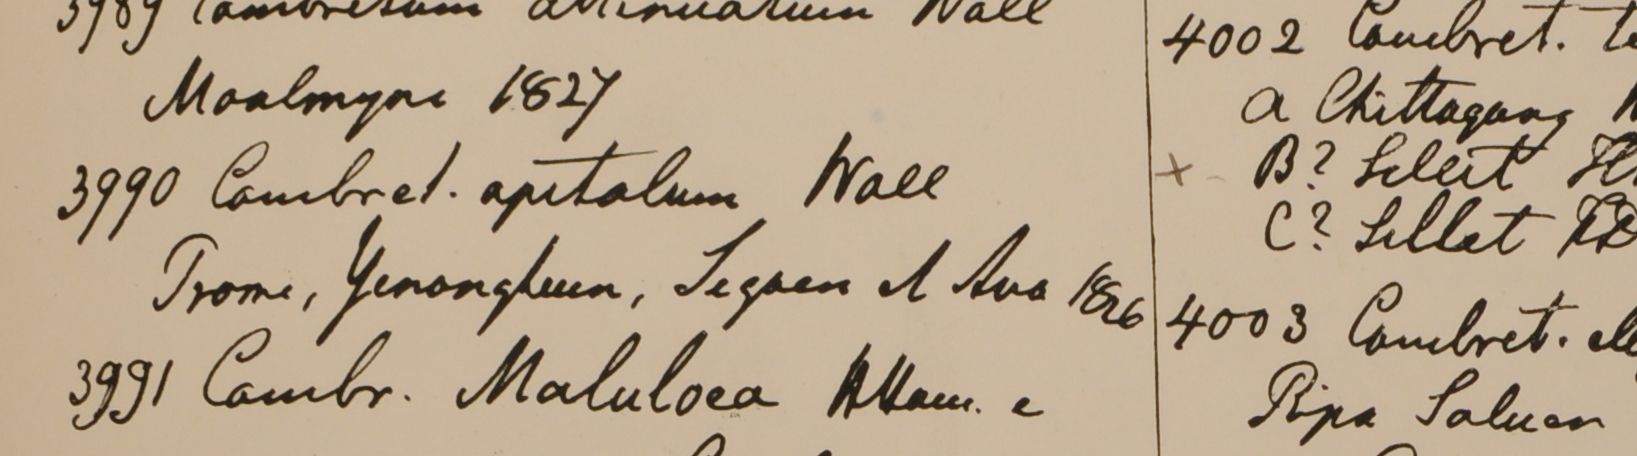 3989 Combretum attenuatum Wall
Moalmyne 1827
3990 Combret. apetalum Wall
Prome, Yenangheun, Segaen et Ava 1826
3991 Combr. Maluloea Ham. e
4002 Combret.
a Chittagong
B? Sillet
C? Sillet
4003 Combret.
Ripa Saluen